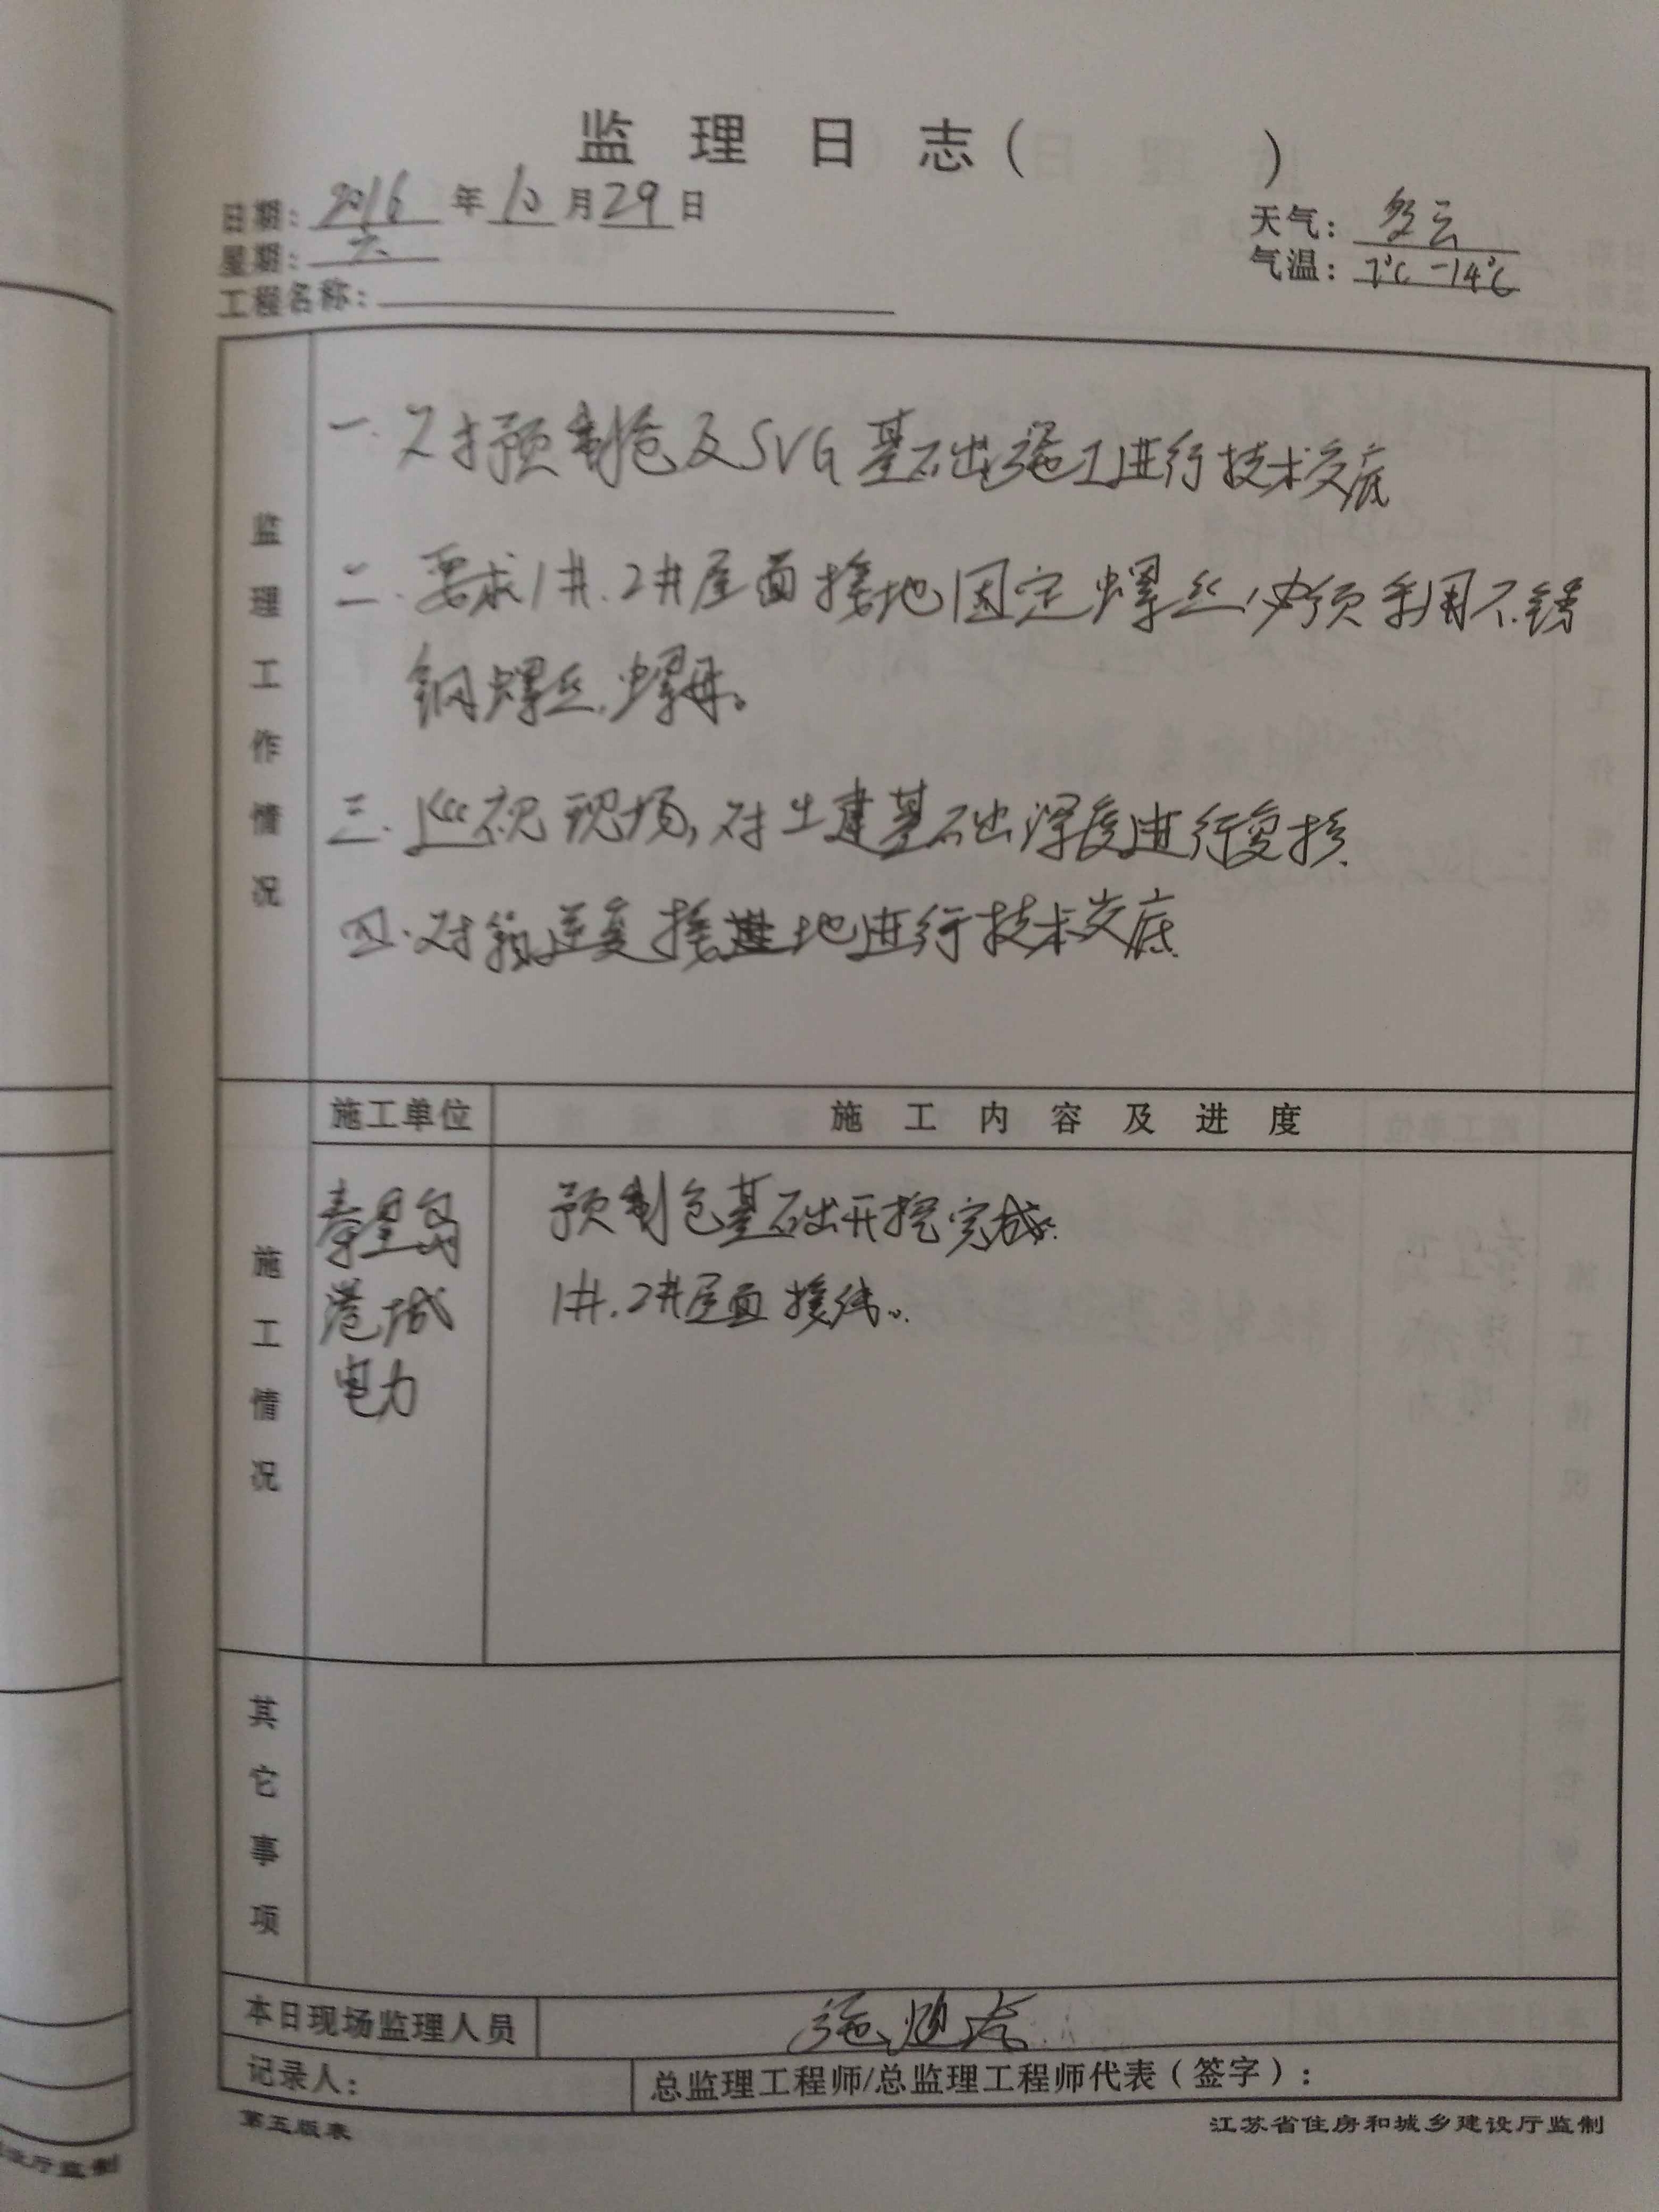 监理日志(　　)
日期: 2016 年 10 月 29 日
天气: 多云
星期: 六
气温: 7℃-14℃
工程名称:
监理工作情况
一. 对预制仓及SVG基础施工进行技术交底
二. 要求1#.2#屋面接地固定螺丝必须利用不锈
钢螺丝.螺母。
三. 巡视现场,对土建基础深度进行复核.
四. 对箱逆变接地进行技术交底.
施工单位
施工内容及进度
施工情况
秦皇岛
港城
电力
预制仓基础开挖完成.
1#.2#屋面接线。
其它事项
本日现场监理人员
记录人:
总监理工程师/总监理工程师代表(签字):
第五版表
江苏省住房和城乡建设厅监制
设厅监制